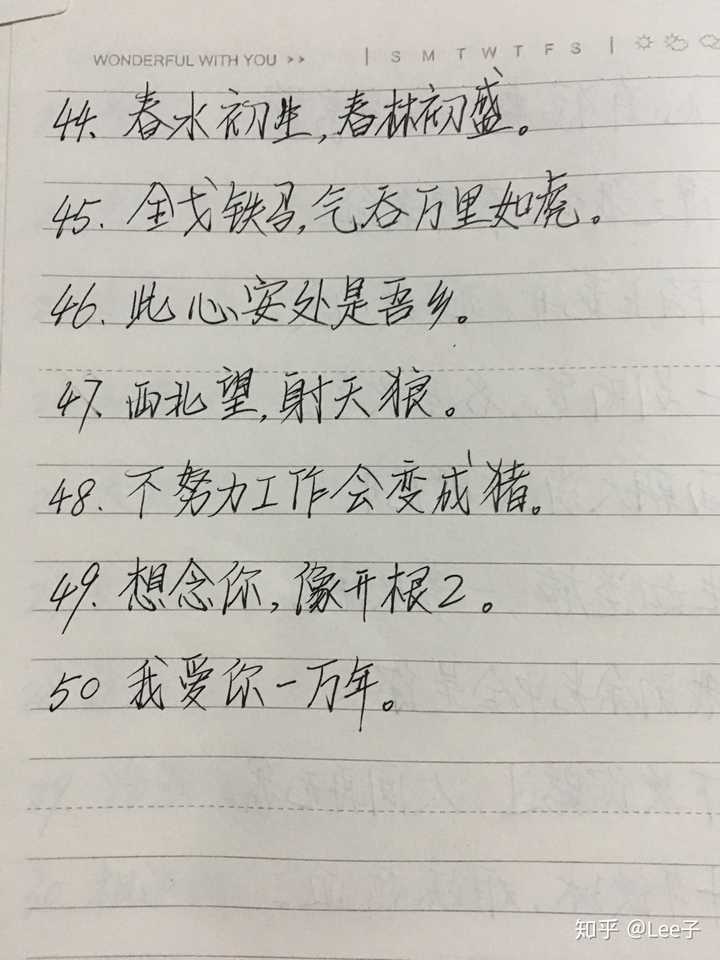 WONDERFUL WITH YOU >> | S M T W T F S |
44. 春水初生,春林初盛。
45. 金戈铁马,气吞万里如虎。
46. 此心安处是吾乡。
47. 西北望,射天狼。
48. 不努力工作会变成猪。
49. 想念你,像开根2。
50 我爱你一万年。
知乎 @Lee子